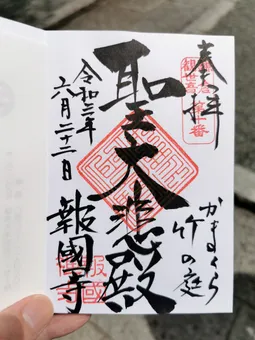 奉拝
かまくら
竹の庭
聖大悲殿
令和三年
六月二十二日
報國寺